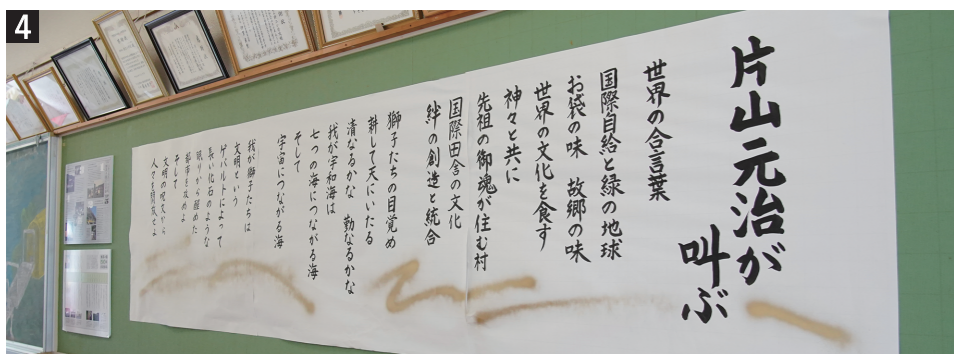 4
片山元治が
叫ぶ
世界の合言葉
国際自給と緑の地球
お袋の味 故郷の味
世界の文化を食す
神々と共に
先祖の御魂が住む村
国際田舎の文化
絆の創造と統合
獅子たちの目覚め
耕して天にいたる
清なるかな 勤なるかな
我が宇和海は
七つの海につながる海
そして
宇宙につながる海
我が獅子たちは
文明という
ゲバルトによって
長い化石のような
眠りから醒めた
都市を攻めよ
そして
文明の呪文から
人々を